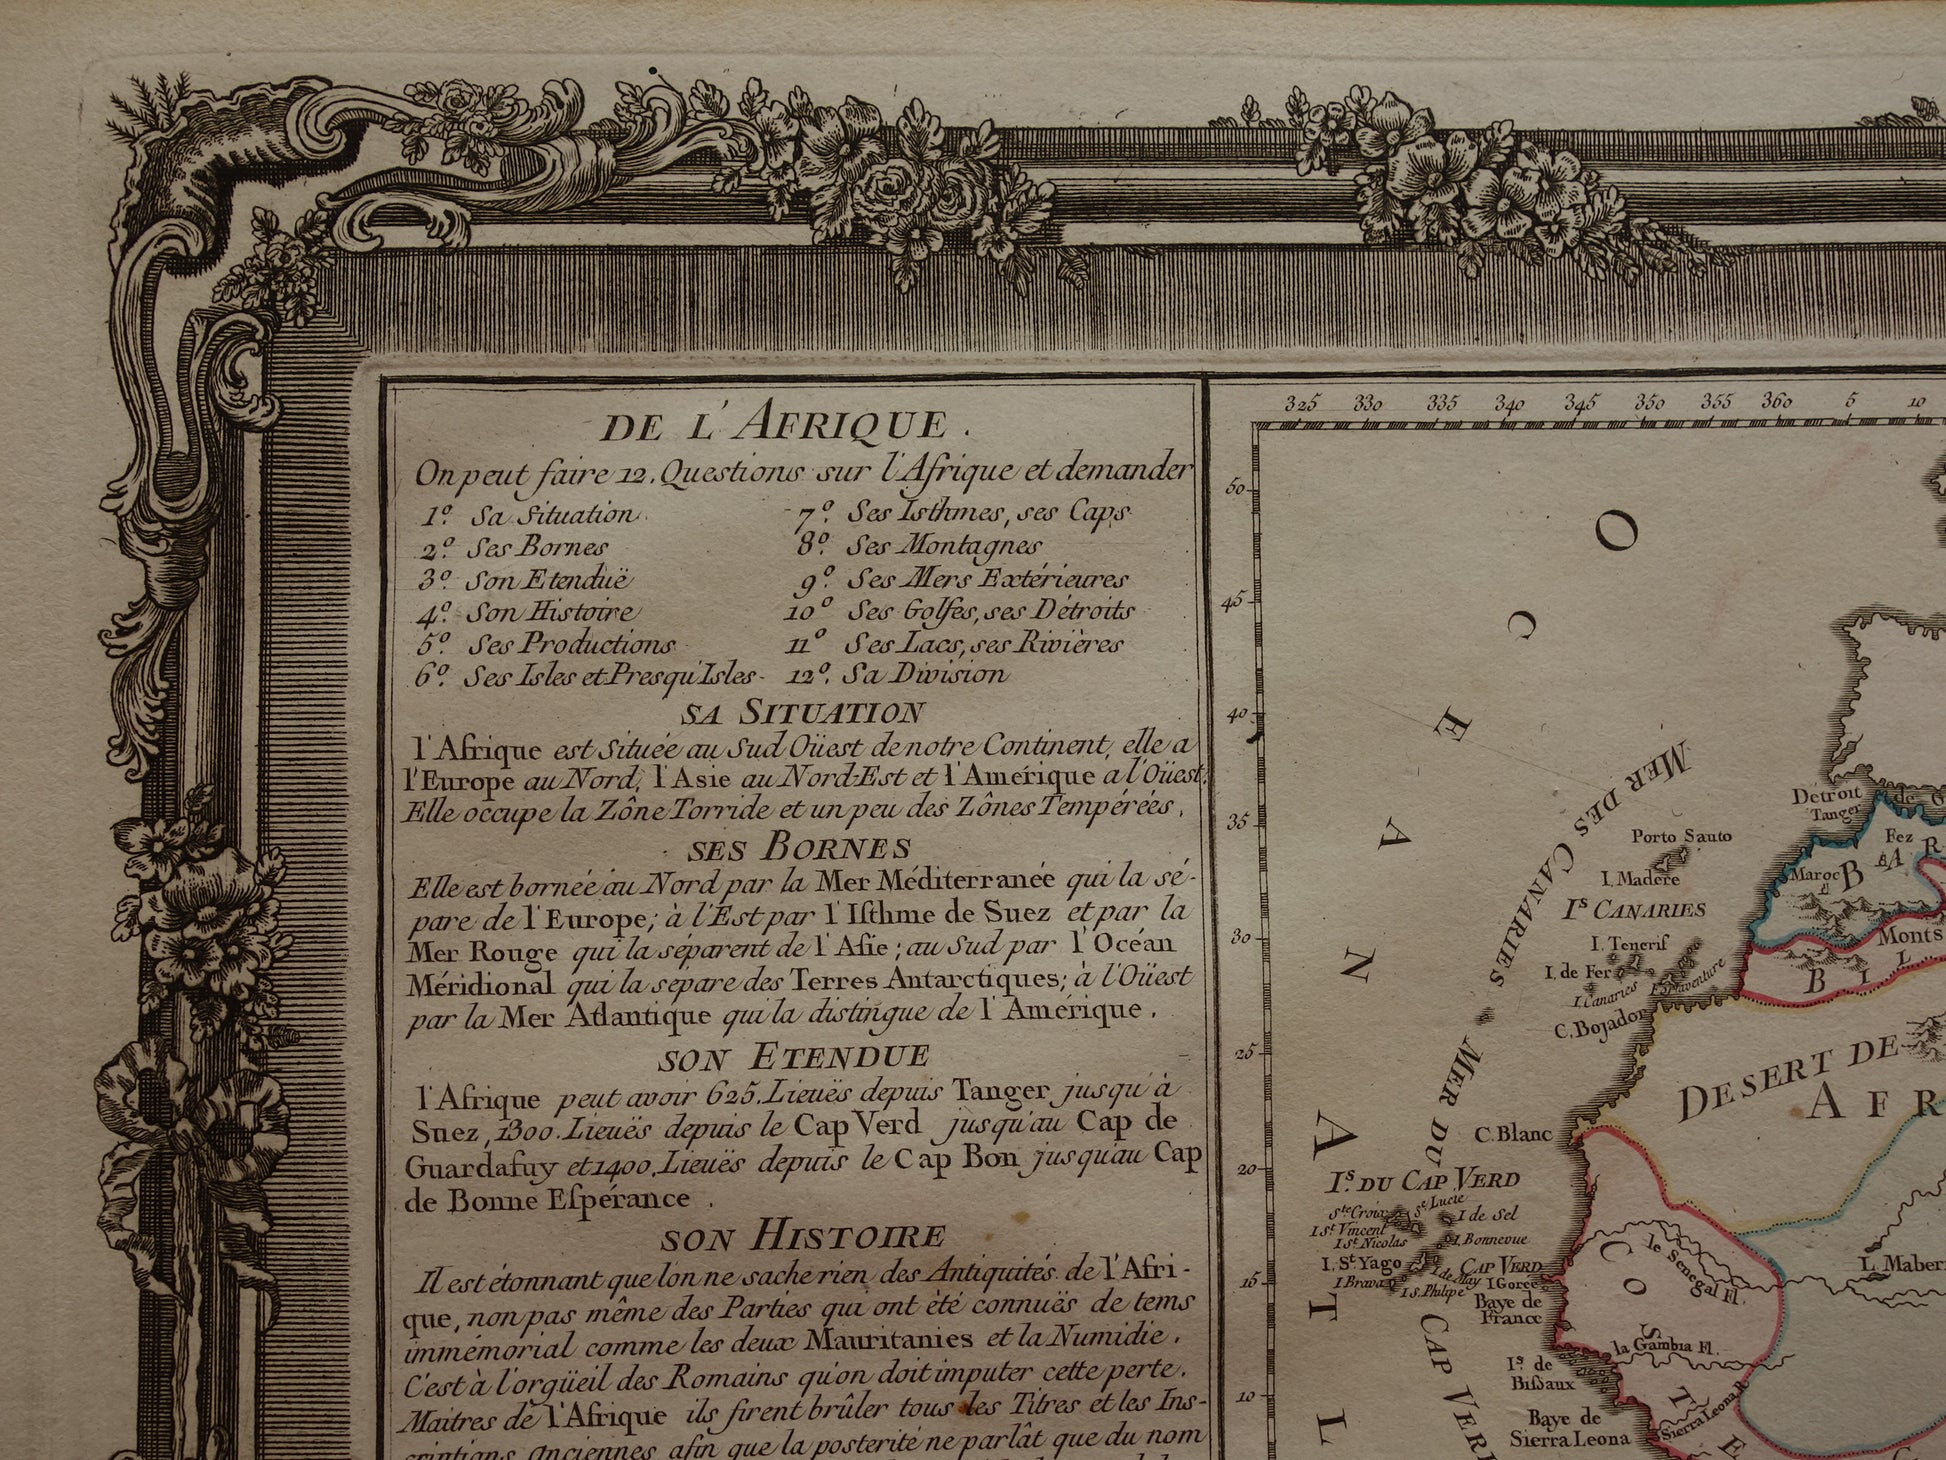 DE L'AFRIQUE.
On peut faire 12. Questions sur l'Afrique et demander
1º. Sa Situation.
2º. Ses Bornes
3º. Son Etenduë
4º. Son Histoire
5º. Ses Productions
6º. Ses Isles et Presqu'Isles
7º. Ses Isthmes, ses Caps
8º. Ses Montagnes
9º. Ses Mers Extérieures
10º Ses Golfes, ses Détroits
11º Ses Lacs, ses Rivières
12º. Sa Division
SA SITUATION
l'Afrique est Située au Sud Oüest de notre Continent, elle a
l'Europe au Nord, l'Asie au Nord-Est et l'Amérique a l'Oüest.
Elle occupe la Zône Torride et un peu des Zônes Tempérées.
SES BORNES
Elle est bornée au Nord par la Mer Méditerranée qui la sé-
pare de l'Europe; à l'Est par l'Isthme de Suez et par la
Mer Rouge qui la séparent de l'Asie; au Sud par l'Océan
Méridional qui la sépare des Terres Antarctiques; à l'Oüest
par la Mer Atlantique qui la distingue de l'Amérique.
SON ETENDUE
l'Afrique peut avoir 625. Lieuës depuis Tanger jusqu'à
Suez, 1300. Lieuës depuis le Cap Verd jusqu'au Cap de
Guardafuy et 1400. Lieuës depuis le Cap Bon jusqu'au Cap
de Bonne Espérance.
SON HISTOIRE
Il est étonnant que lon ne sache rien des Antiquités de l'Afri-
que, non pas même des Parties qui ont été connuës de tems
immémorial comme les deux Mauritanies et la Numidie.
C'est à l'orgüeil des Romains qu'on doit imputer cette perte.
Maitres de l'Afrique ils firent brûler tous les Titres et les Ins-
criptions Anciennes afin que la posterité ne parlât que du nom
325 330 335 340 345 350 355 360 5 10
50
45
40
35
30
25
20
15
10
OCEAN ATL
MER DES CANARIES
MER DU CAP VER
Détroit de G
Tanger
Fez
Maroc
BAR
Porto Santo
I. Madere
Is CANARIES
I. Tenerif
I. de Fer
I. Canaries
Fortaventure
C. Bojador
Monts
BIL
DESERT DE
AFR
C. Blanc
Is. DU CAP VERD
Ste Croix
Se Lucie
I de Sel
I St. Vincent
I St. Nicolas
I. Bonnevue
I. St Yago
I de May
I. Brava
I. S. Philipe
CAP VERD
I Gorée
Baye de
France
le Senegal Fl.
L. Maber
la Gambia Fl.
Is. de
Bissaux
Baye de
Sierra Leona
Sierra Leona R
COSTE